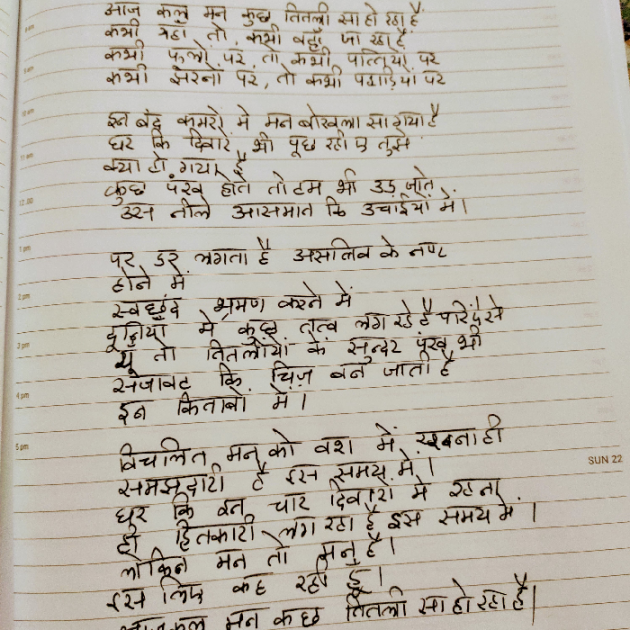 आज कल मन कुछ तितली सा हो रहा है
कभी यहाँ तो कभी वहाँ जा रहा है
कभी फूलों पर तो कभी पत्तियों पर
कभी झरनों पर, तो कभी पहाड़ियों पर
इन बंद कमरों में मन बोखला सा गया है
घर कि दिवारें भी पूछ रही ए तुझे
क्या हो गया है
कुछ पंख होते तो हम भी उड़ जाते
उस नीले आसमान कि उचाईयों में।
पर डर लगता है के नष्ट
होने में
स्वछंद भ्रमण करने में
में कुछ तत्व लग रहे है
यूँ तो तितलीयों के सुन्दर पंख भी
सजावट कि चिज़ बन जाती है
इन किताबों में।
विचलित मन को वश में रखना ही
समझदारी है इस समय में।
घर कि इन चार दिवारों में रहना
ही हितकारी लग रहा है इस समय में।
लेकिन मन तो मनु है।
इस लिए कह रही हूँ।
आज कल मन कुछ तितली सा हो रहा है।
SUN 22
9 am
10 am
11 am
12.00
1 pm
2 pm
3 pm
4 pm
5 pm